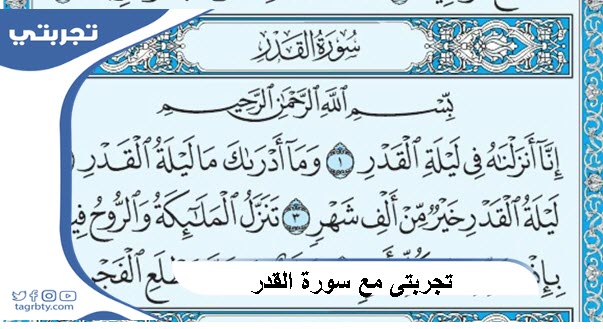 تجربتي
سُورَةُ القَدْرِ
بِسْمِ اللَّهِ الرَّحْمَٰنِ الرَّحِيمِ
إِنَّا أَنزَلْنَاهُ فِي لَيْلَةِ الْقَدْرِ ١ وَمَا أَدْرَاكَ مَا لَيْلَةُ الْقَدْرِ
لَيْلَةُ الْقَدْرِ خَيْرٌ مِّنْ أَلْفِ شَهْرٍ ٣ تَنَزَّلُ الْمَلَائِكَةُ وَالرُّوحُ فِيهَا
الْفَجْرِ
تجربتى مع سورة القدر
tagrbty.com